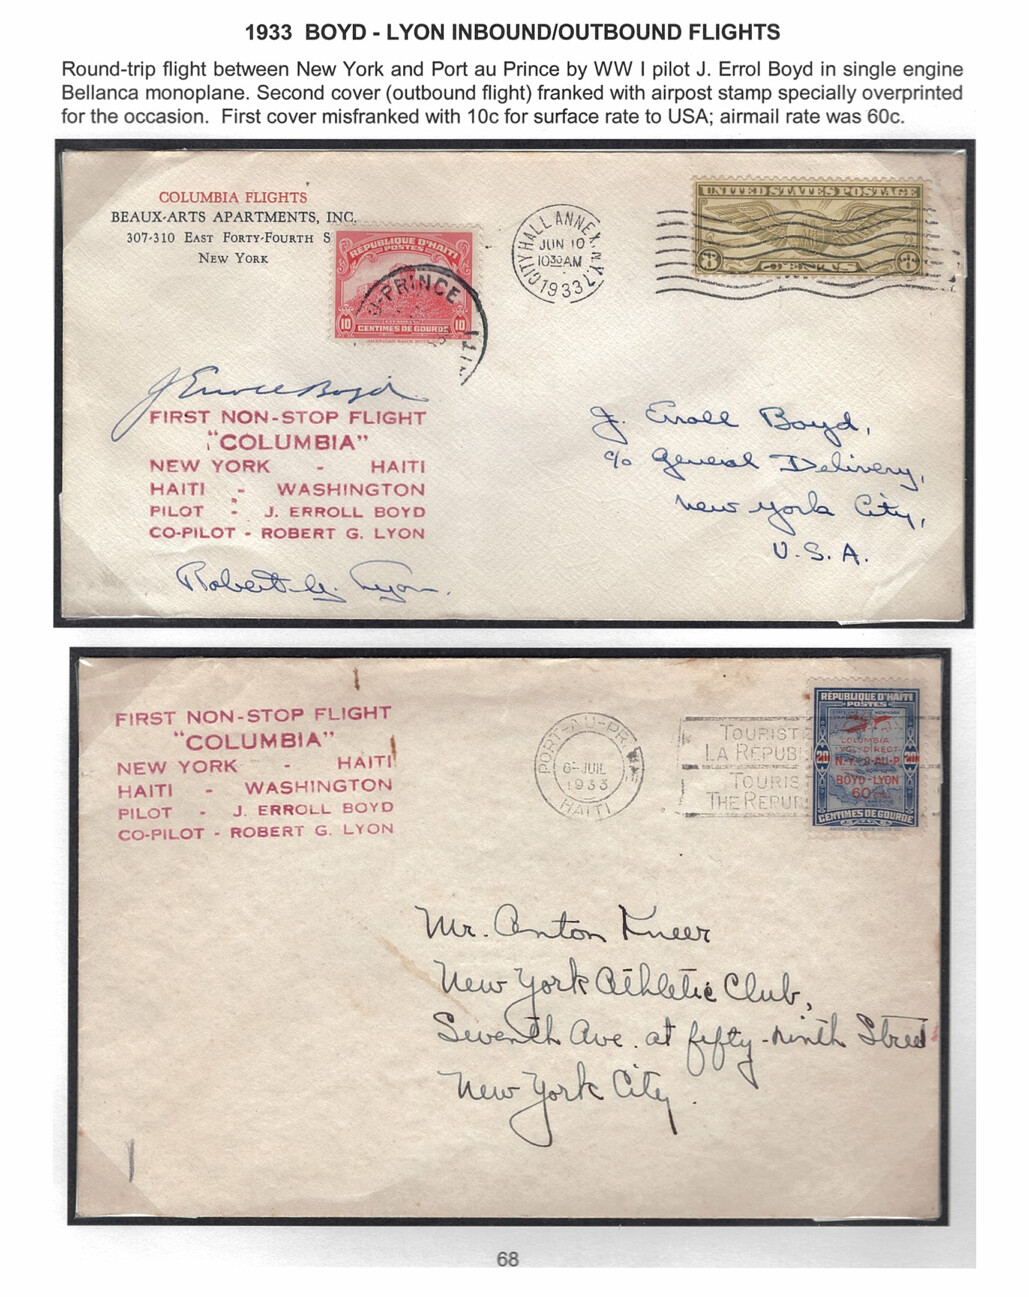 1933 BOYD - LYON INBOUND/OUTBOUND FLIGHTS
Round-trip flight between New York and Port au Prince by WW I pilot J. Errol Boyd in single engine
Bellanca monoplane. Second cover (outbound flight) franked with airpost stamp specially overprinted
for the occasion. First cover misfranked with 10c for surface rate to USA; airmail rate was 60c.
COLUMBIA FLIGHTS
BEAUX-ARTS APARTMENTS, INC.
307-310 EAST FORTY-FOURTH S
NEW YORK
REPUBLIQUE D'HAITI
POSTES
10 10
CENTIMES DE GOURDE
U-PRINCE
CITY HALL ANNEX, N.Y.
JUN 10
1030 AM
1933
UNITED STATES POSTAGE
8 CENTS 8
J Erroll Boyd
FIRST NON-STOP FLIGHT
"COLUMBIA"
NEW YORK - HAITI
HAITI - WASHINGTON
PILOT - J. ERROLL BOYD
CO-PILOT - ROBERT G. LYON
Robert G. Lyon.
J. Erroll Boyd,
c/o General Delivery,
New York City,
U.S.A.
FIRST NON-STOP FLIGHT
"COLUMBIA"
NEW YORK - HAITI
HAITI - WASHINGTON
PILOT - J. ERROLL BOYD
CO-PILOT - ROBERT G. LYON
PORT-AU-PR
6-JUIL
1933
HAITI
TOURISTE
LA REPUBL
TOURIS
THE REPUB
RÉPUBLIQUE D'HAITI
POSTES
COLUMBIA
VOL-DIRECT
N.Y.-P-AU-P.
20 20
BOYD-LYON
60
CENTIMES DE GOURDE
Mr. Anton Kueer
New York Athletic Club,
Seventh Ave. at fifty-ninth Street
New York City.
68